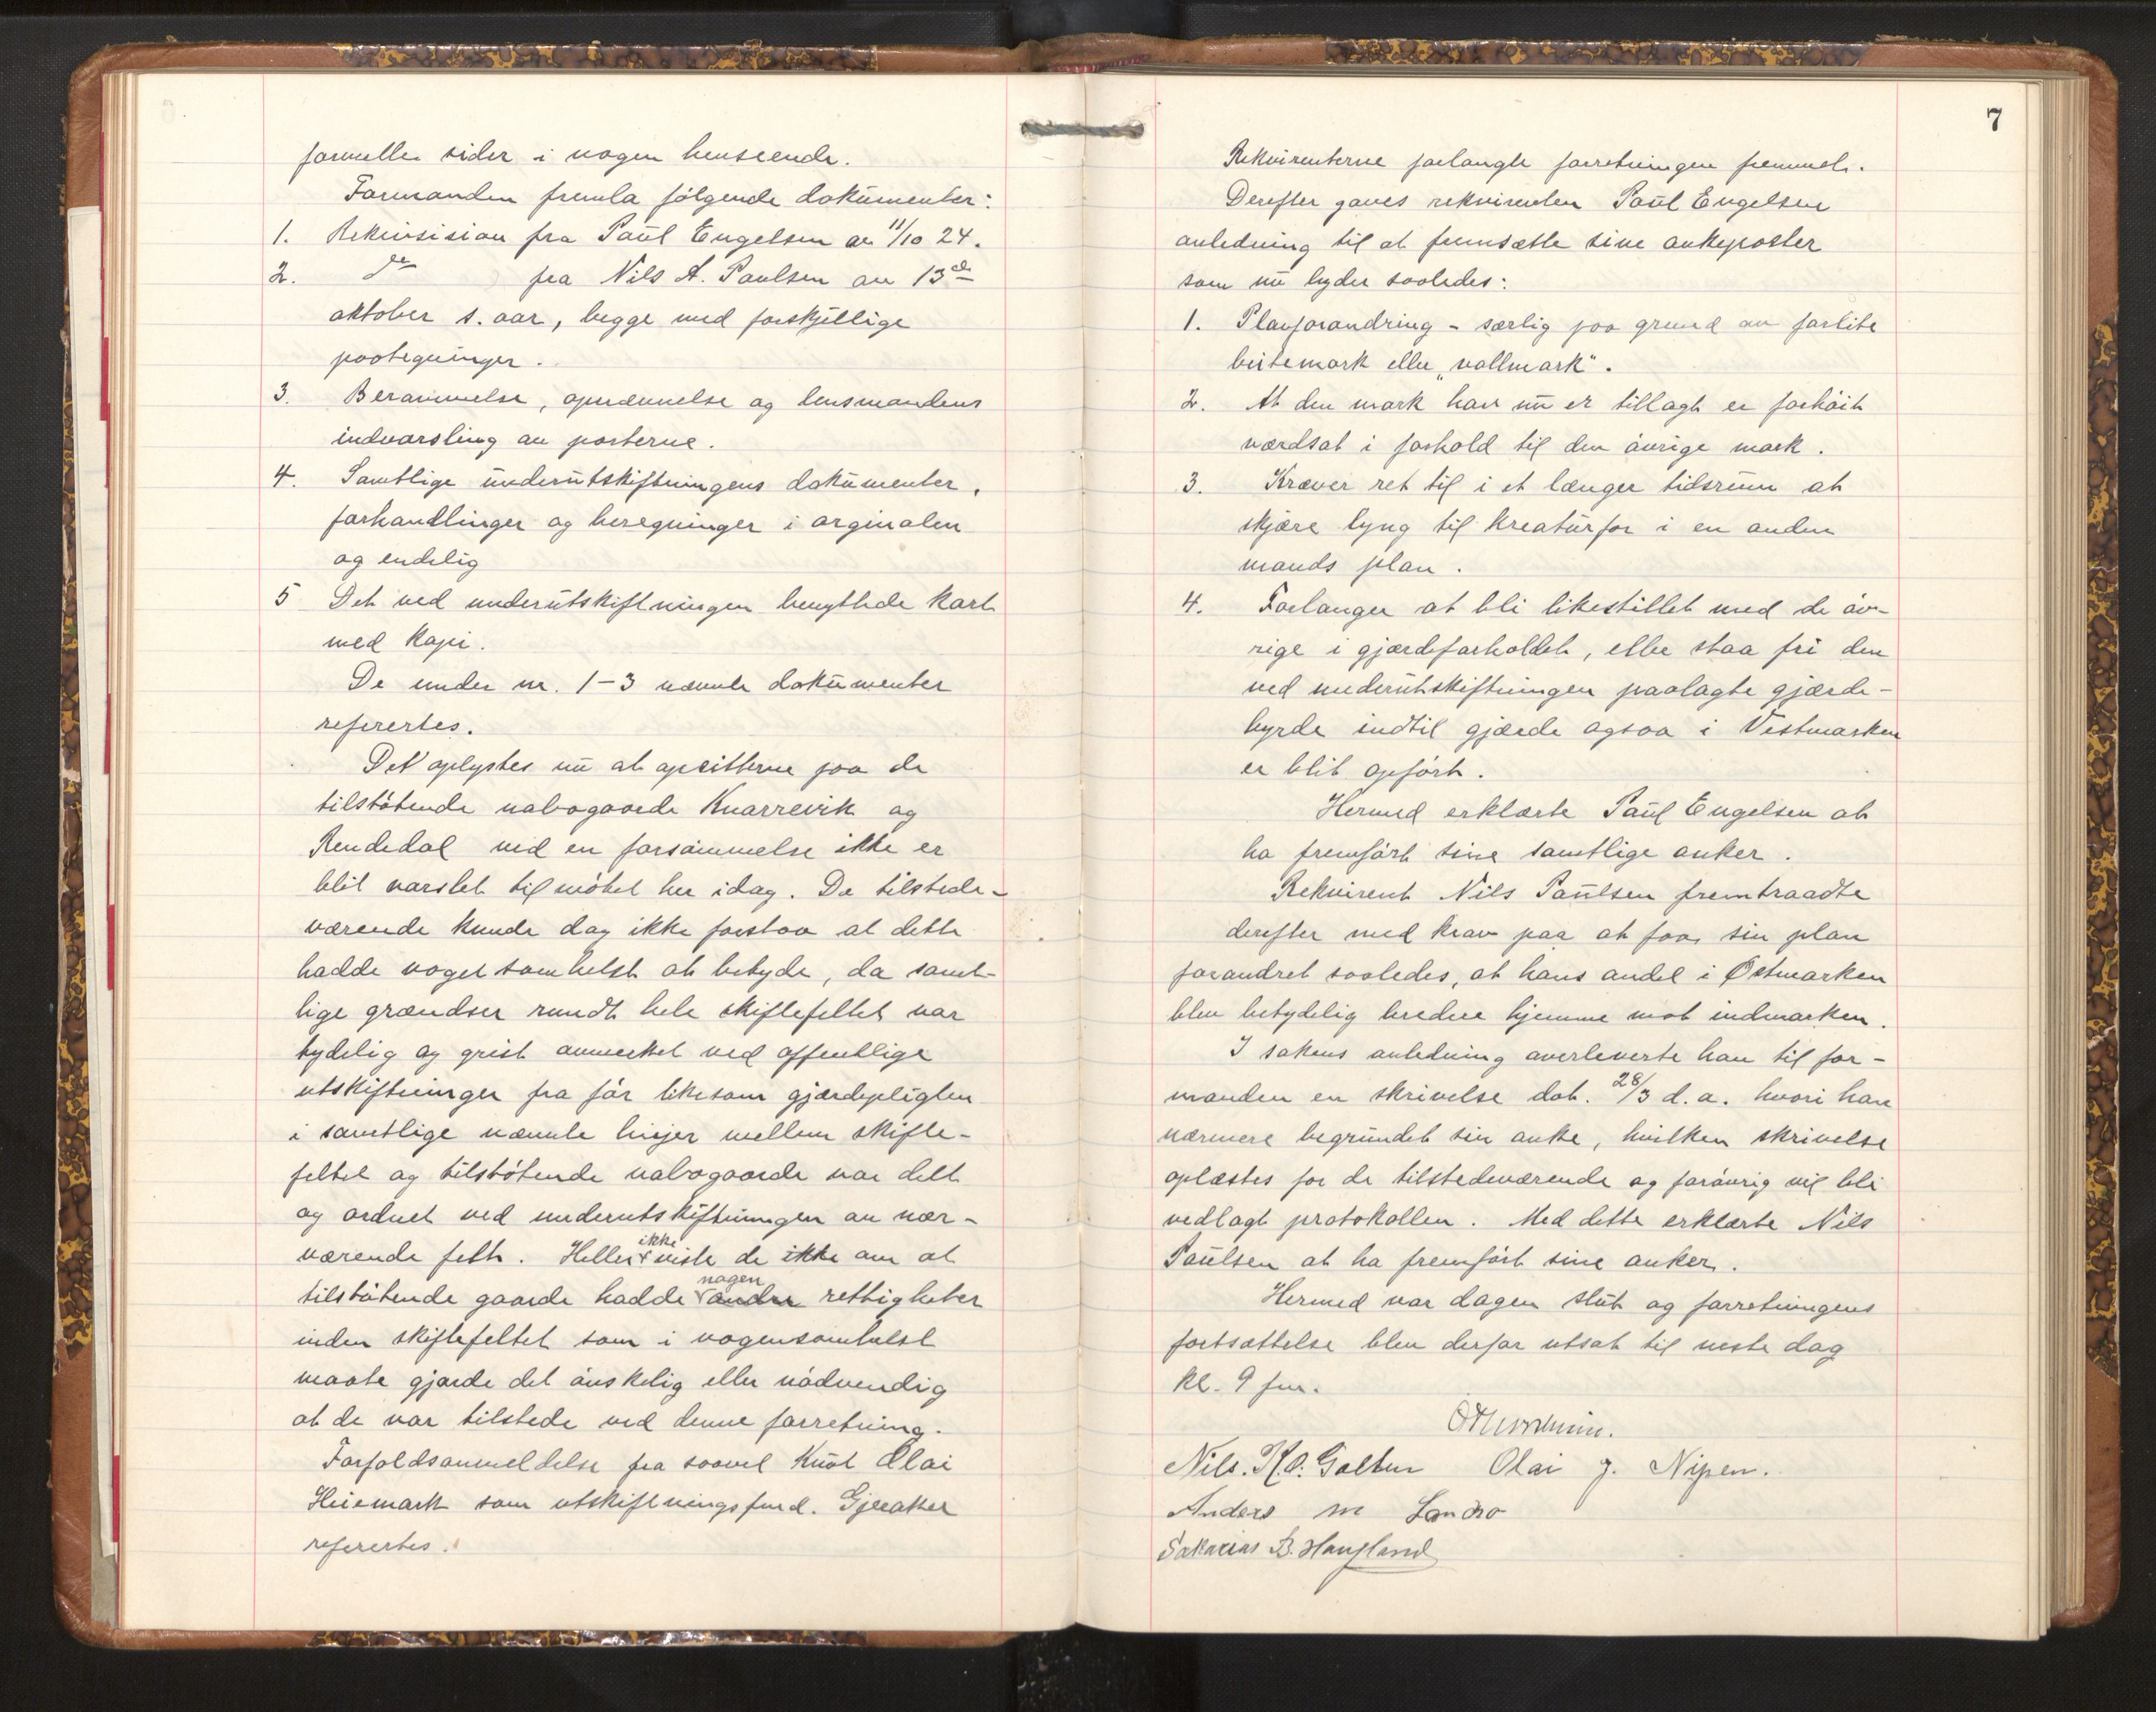 formelle sider i nogen henseende.
Formanden fremla følgende dokumenter:
1. Rekvisision fra Paul Engelsen av 11/10 24.
2. do fra Nils A. Paulsen av 13de
oktober s. aar, begge med forskjellige
paategninger.
3. Berammelse, opnævnelse og lensmandens
indvarsling av parterne.
4. Samtlige underutskiftningens dokumenter,
forhandlinger og beregninger i orginalen
og endelig
5 Det ved underutskiftningen benyttede kart
med kopi.
De under nr. 1-3 nævnte dokumenter
referertes.
Det oplystes nu at opsitterne paa de
tilstøtende nabogaarde Knarrevik og
Rendedal ved en forsømmelse ikke er
blit varslet til møtet her idag. De tilstede-
værende kunde dog ikke forstaa at dette
hadde noget somhelst at betyde, da samt-
lige grændser rundt hele skiftefeltet var
tydelig og greit avmerket ved offentlige
utskiftninger fra før likesom gjærdepligten
i samtlige nævnte linjer mellem skifte-
feltet og tilstøtende nabogaarde var delt
og ordnet ved underutskiftningen av nær-
værende felt. Heller ikke viste de ikke om at
tilstøtende gaarde hadde nogen andre rettigheter
inden skiftefeltet som i nogensomhelst
maate gjorde det ønskelig eller nødvendig
at de var tilstede ved denne forretning.
Forfaldsanmeldelse fra saavel Knut Olai
som utskiftningsfmd. Gjeraker
referertes.
7
Rekvirenterne forlangte forretningen fremmet.
Derefter gaves rekvirenten Paul Engelsen
anledning til at fremsætte sine ankeposter
som nu lyder saaledes:
1. Planforandring - særlig paa grund av forlite
beitemark eller "vollmark".
2. At den mark han nu er tillagt er forhøit
værdsat i forhold til den øvrige mark.
3. Kræver ret til i et længer tidsrum at
skjære lyng til kreaturfor i en anden
mands plan.
4. Forlanger at bli likestillet med de øv-
rige i gjærdeforholdet, eller staa fri den
ved underutskiftningen paalagte gjærde-
byrde indtil gjærde ogsaa i Vestmarken
er blit opført.
Hermed erklærte Paul Engelsen at
ha fremført sine samtlige anker.
Rekvirent Nils Paulsen fremtraadte
derefter med krav paa at faa sin plan
forandret saaledes, at hans andel i Østmarken
blev betydelig bredere hjemme mot indmarken.
I sakens anledning overleverte han til for-
manden en skrivelse dat. 28/3 d.a. hvori han
nærmere begrundet sin anke, hvilken skrivelse
oplæstes for de tilstedeværende og forøvrig vil bli
vedlagt protokollen. Med dette erklærte Nils
Paulsen at ha fremført sine anker.
Hermed var dagen slut og forretningens
fortsættelse blev derfor utsat til neste dag
kl. 9 fm.
Nils. K.O. Golten Olai J. Nipen.
Anders M Landro
Sakarias B. Haugland